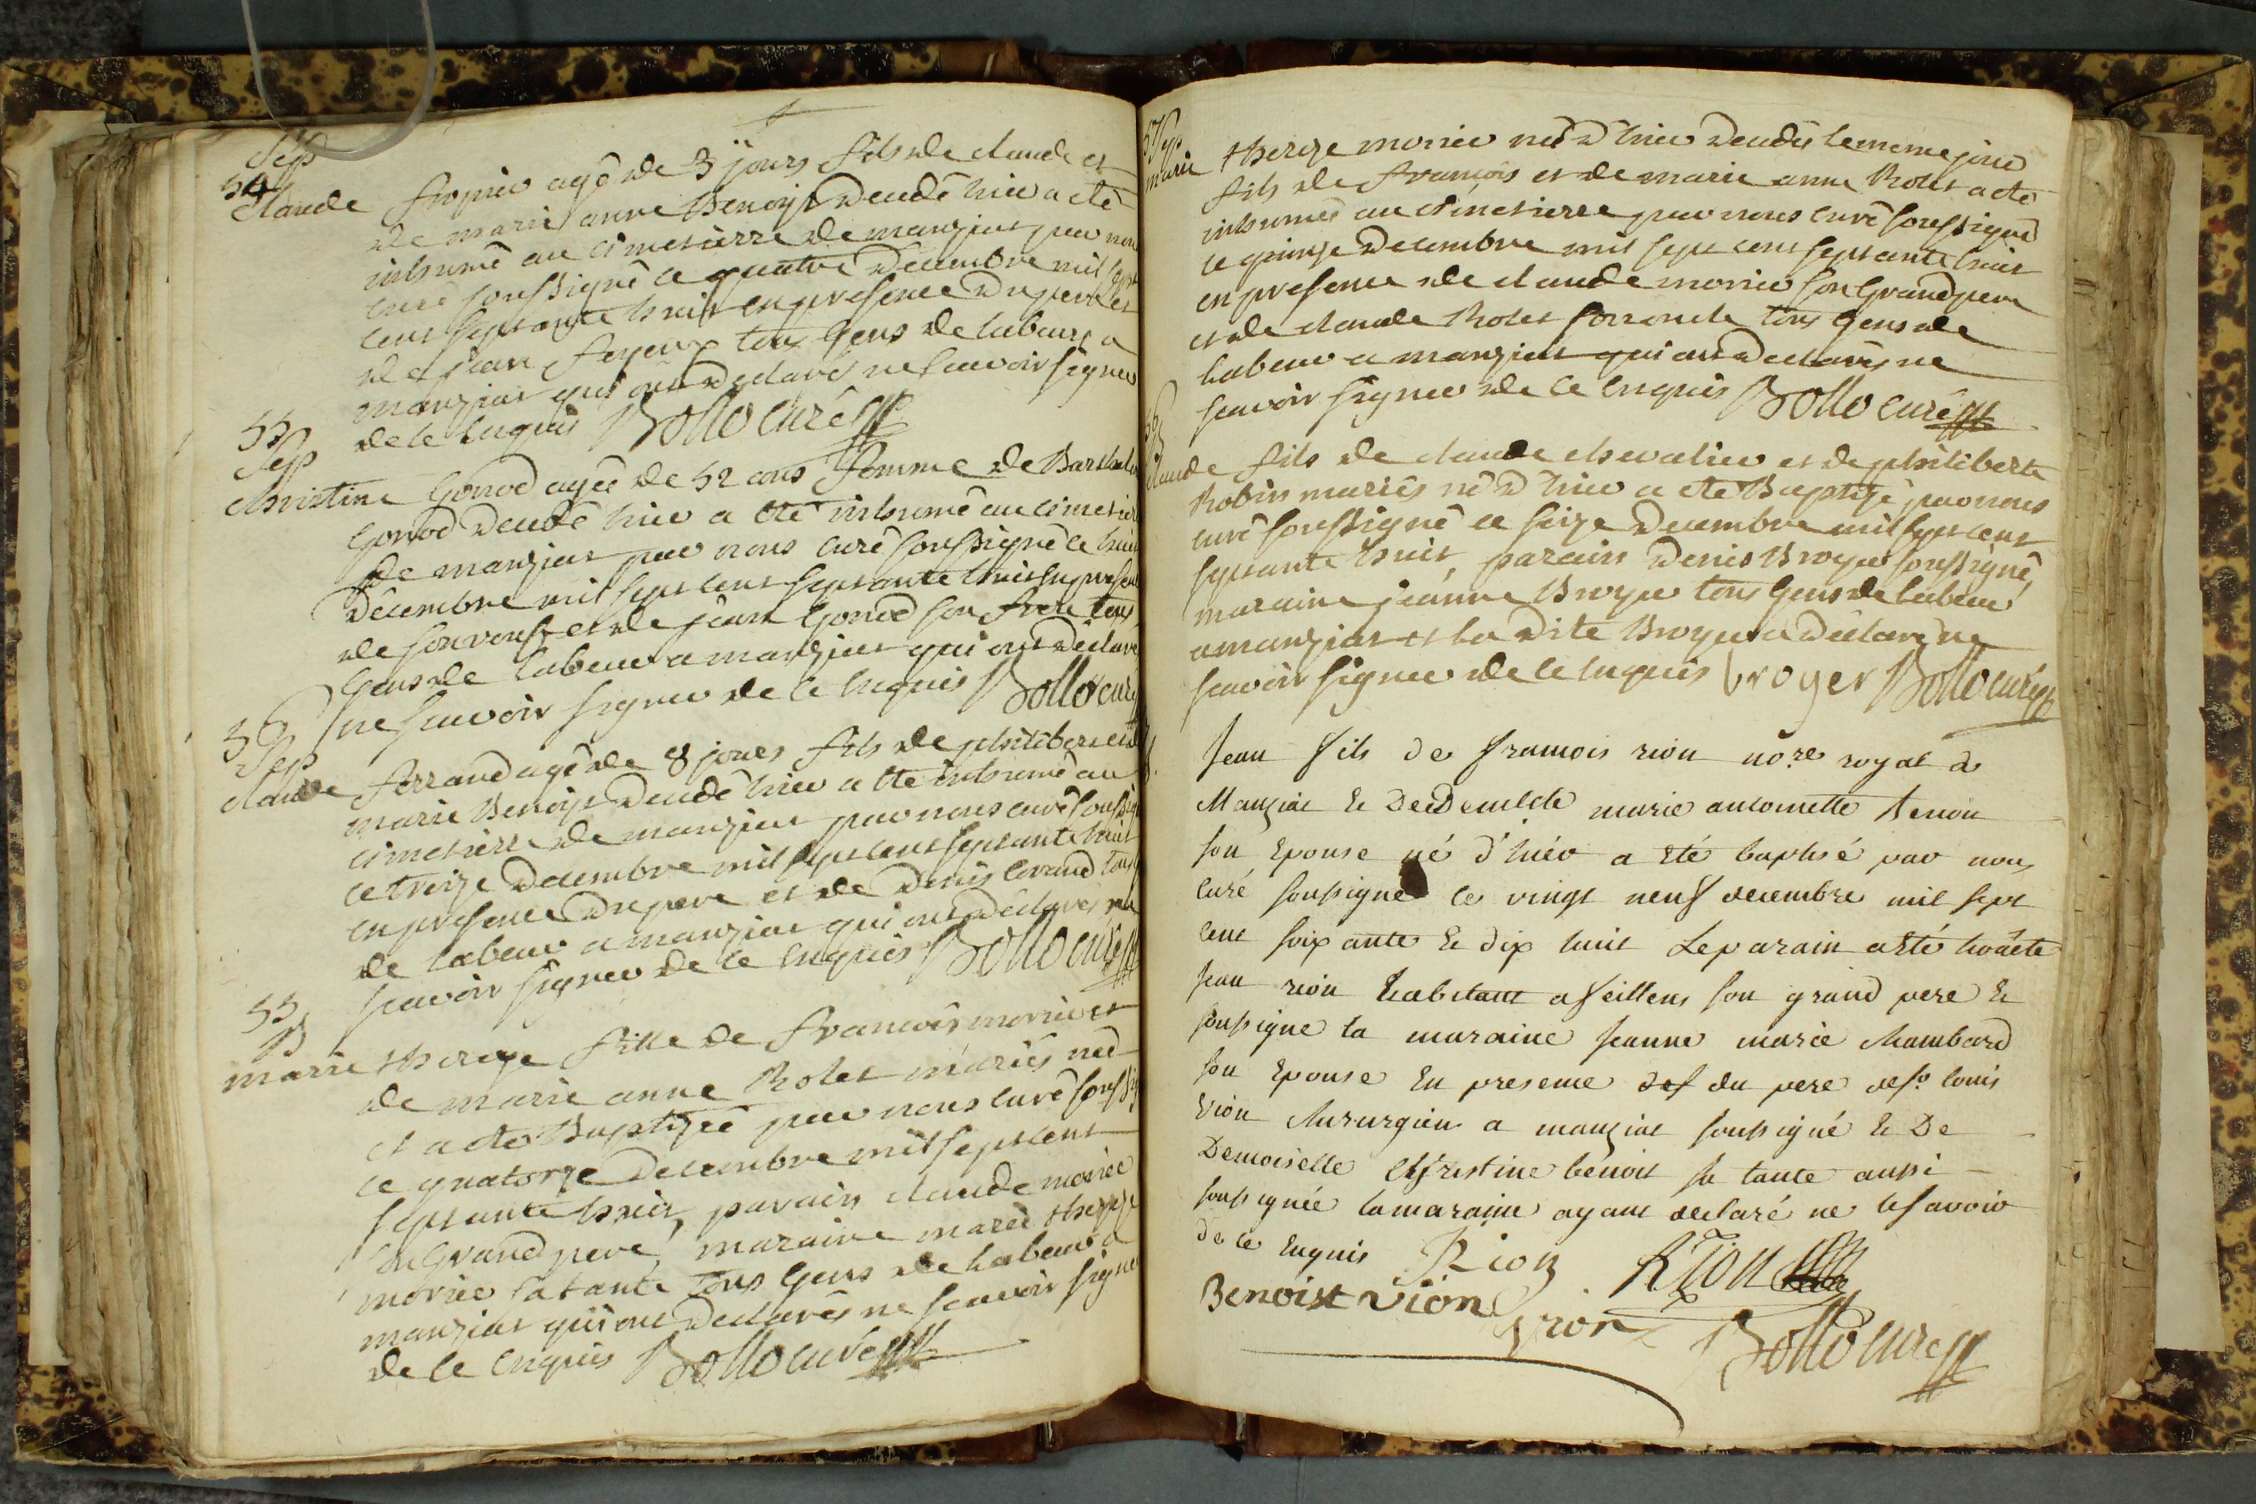 Sep
54
Claude fropier agé de 3 jours fils de claude et
de marie anne Benoist decedé hier a eté
inhumé au cimetierre de manziat par nous
curé soussigné ce quatre decembre mil sept
cent septante huit en presence du pere et
de jean feyeux tous gens de labeur a
manziat qui ont declarés ne scavoir signer
de ce enquis Bollo curé
55
Sep
christine Gonod agée de 52 ans femme de Barthelem
Gonod decedé hier a eté inhumé au cimetier
de manziat par nous curé soussigné ce huit
decembre mil sept cent septante huit en presen
de son veuf et de jean Gonod son frere tous
gens de labeur a manziat qui ont declaré
ne scavoir signer de ce enquis Bollo curé
56
Sep
claude ferrand agé de 8 jours fils de philibert et de
marie Benoist decedé hier a eté inhumé au
cimetierre de manziat par nous curé soussig
ce treize decembre mil sept cent septante huit
en presence du pere et de Denis ferrand tous
de labeur a manziat qui ont declarés ne
scavoir signer de ce enquis Bollo curé
55
B
marie thereze fille de francois morier et
de marie anne Rolet mariés née
et a eté Baptizée par nous curé soussig
ce quatorze decembre mil sept cent
septante huit, parain claude morier
son Grand pere, maraine marie thereze
morier sa tante tous gens de labeur a
manziat qui ont declarés ne scavoir signer
de ce enquis Bollo curé
57 Sep
marie thereze morier née d'hier decedée le meme jour
fils de francois et de marie anne Rolet a eté
inhumée au cimetierre par nous curé soussigné
ce quinze decembre mil sept cent septante huit
en presence de claude morier son Grand pere
et de claude Rolet son oncle tous gens de
labeur a manziat qui ont declarés ne
scavoir signer de ce enquis Bollo curé
56
B
claude fils de claude chevalier et de philiberte
Robin mariés né d'hier a eté Baptizé, par nous
curé soussigné ce seize decembre mil sept cent
septante huit, parain Denis Broyer soussigné,
maraine jeanne Broyer tous gens de labeur
a manziat et la dite Broyer a declaré ne
scavoir signer de ce enquis broyer Bollo curé
Jean fils de francois rion no.re royal à
Manziat & de Demlle marie antoinette Benoit
son Epouse né d'hiér a été baptisé par nous
curé soussigné ce vingt neuf decembre mil sept
cent soixante & dix huit Le parain a été honête
jean rion habitant a feillens son grand pere &
soussigné la maraine jeanne marie Chambard
son Epouse En presence du pere de sr louis
vion chirurgien a manziat soussigné & De
Demoiselle christine benoit sa tante aussi
soussignée la maraine ayant declaré ne le savoir
de ce Enquis Rion Rion
Benoist vion
vion Bollo curé